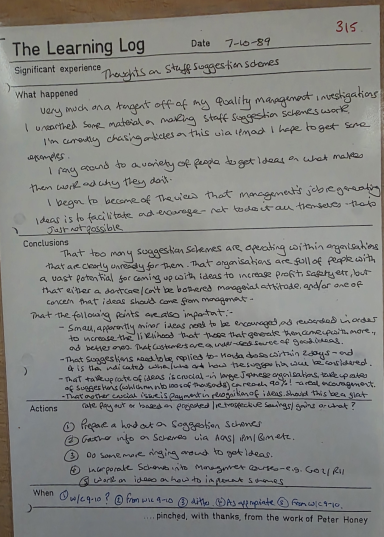 315
The Learning Log Date 7-10-89
Significant experience Thoughts on Staff Suggestion Schemes
What happened
Very much on a tangent off of my Quality Management investigations
I unearthed some material on making Staff Suggestion Schemes work,
I'm currently chasing articles on this via and I hope to get some
examples.
I rang around to a variety of people to get ideas on what makes
them work and why they don't.
I began to become of the view that management's job re generating
ideas is to facilitate and encourage - not to do it all themselves - that's
Just not possible
Conclusions
That too many suggestion schemes are operating within organisations
that are clearly unready for them. That organisations are full of people with
a vast potential for coming up with ideas to increase profit, safety etc, but
that either a don't care/can't be bothered managerial attitude and/or one of
concern that ideas should come from management -
That the following points are also important:-
- Small, apparently minor ideas need to be encouraged and rewarded in order
to increase the likelihood that those that generate them come up with more,
and better ones. That customers are a under-used source of good ideas.
- That suggestions need to be replied to - Honda does within 2 days - and
it is then indicated when/who and how the suggestion will be considered.
- That take up rate of ideas is crucial - in large Japanese organisations take up rates
of suggestions (which run into 100s of thousands) can reach 90%! - a real encouragement.
- That another crucial issue is payment in recognition of ideas should this be a flat
rate pay out or based on projected/retrospective savings/gains or what?
Actions
① Prepare a handout on Suggestion Schemes
② Gather info on Schemes via etc.
③ Do some more ringing around to get ideas.
④ Incorporate Schemes into Management Courses - e.g.
⑤ Work on ideas on how to implement schemes
When ① w/c 9-10? ② From w/c 9-10 ③ ditto ④ As appropriate ⑤ From w/c 9-10.
.... pinched, with thanks, from the work of Peter Honey